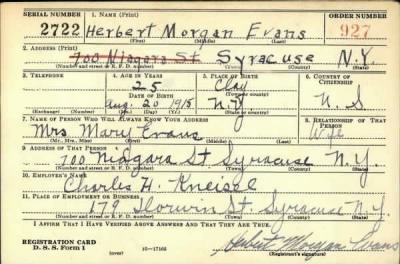 SERIAL NUMBER 1. NAME (Print) ORDER NUMBER
2722 Herbert Morgan Evans 927
(First) (Middle) (Last)
2. ADDRESS (Print)
700 Niagara St. Syracuse N.Y.
(Number and street or R. F. D. number) (Town) (County) (State)
3. TELEPHONE 4. AGE IN YEARS 5. PLACE OF BIRTH 6. COUNTRY OF CITIZENSHIP
25 Clay
DATE OF BIRTH (Town or county)
Aug. 20 1915 N.Y. U.S.
(Exchange) (Number) (Mo.) (Day) (Yr.) (State or country)
7. NAME OF PERSON WHO WILL ALWAYS KNOW YOUR ADDRESS 8. RELATIONSHIP OF THAT PERSON
Mrs Mary Evans Wife
(Mr., Mrs., Miss) (First) (Middle) (Last)
9. ADDRESS OF THAT PERSON
700 Niagara St Syracuse N.Y.
(Number and street or R. F. D. number) (Town) (County) (State)
10. EMPLOYER'S NAME
Charles H. Kneisel
11. PLACE OF EMPLOYMENT OR BUSINESS
179 St. Syracuse N.Y.
(Number and street or R. F. D. number) (Town) (County) (State)
I AFFIRM THAT I HAVE VERIFIED ABOVE ANSWERS AND THAT THEY ARE TRUE.
REGISTRATION CARD
D. S. S. Form 1 (over) 16-17105
Herbert Morgan Evans
(Registrant's signature)